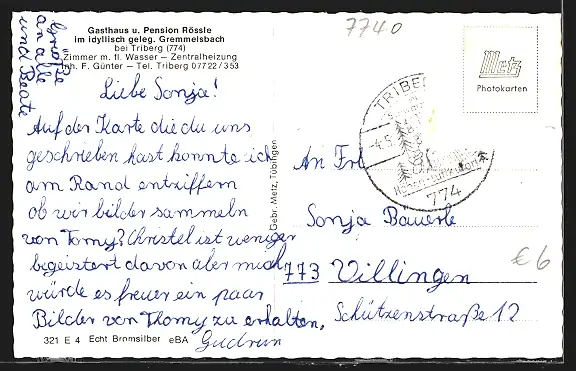 Gasthaus u. Pension Rössle
im idyllisch geleg. Gremmelsbach
bei Triberg (774)
Zimmer m. fl. Wasser – Zentralheizung
Inh. F. Günter – Tel. Triberg 07722/353
Grüße
an alle
und Beate
Liebe Sonja!
Auf der Karte die du uns
geschrieben hast konnte ich
am Rand entziffern
ob wir bilder sammeln
von Tomy? Christel ist weniger
begeistert davon aber mich
würde es freuen ein paar
Bilder von Thomy zu erhalten,
Gudrun
321 E 4 Echt Bromsilber eBA
Gebr. Metz, Tübingen
7740
Metz
Photokarten
TRIBE
-4.5
774
An Frl
Sonja Bäuerle
773 Villingen
Schützenstraße 12
€ 6